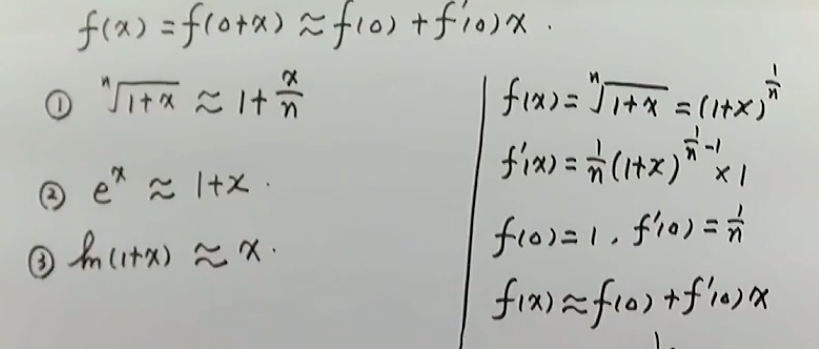 f(x) = f(0+x) ≈ f(0) + f'(0)x .
① ⁿ√(1+x) ≈ 1 + x/n
② eˣ ≈ 1+x .
③ ln(1+x) ≈ x .
f(x) = ⁿ√(1+x) = (1+x)^(1/n)
f'(x) = 1/n (1+x)^(1/n - 1) × 1
f(0) = 1 , f'(0) = 1/n
f(x) ≈ f(0) + f'(0)x